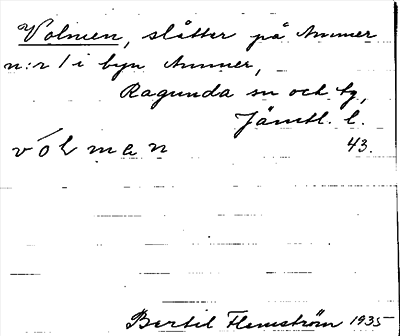 Volmen, slåtter på Ammer
n:r 1 i byn Ammer,
Ragunda sn och tg,
Jämtl. l.
vólman 43.
Bertil Flemström 1935